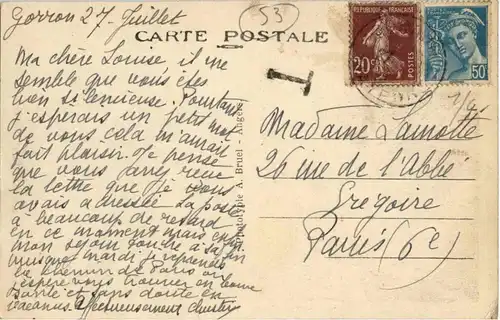 Gorron 27 Juillet
53
CARTE POSTALE
RÉPUBLIQUE FRANÇAISE
20c POSTES
50c
T
Ma chère Louise il me
semble que vous êtes
bien silencieuse. Pourtant
j'espérais un petit mot
de vous cela m'aurait
fait plaisir. Je pense
que vous avez reçu
la lettre que je vous
avais adressée la poste
a beaucoup de retard
en ce moment mais enfin
mon séjour touche à sa fin
puisque mardi je reprends
le chemin de Paris où
j'espère vous trouver en bonne
santé et sans doute en
vacances. Affectueusement
Phototypie A. Bruel - Angers
Madame Lamotte
26 rue de l'Abbé
Grégoire
Paris (6e)